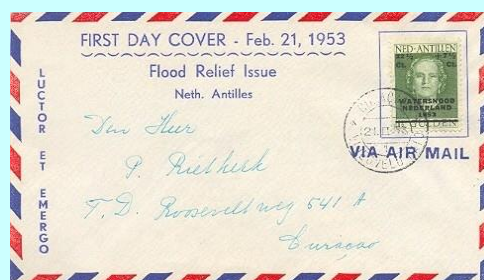 FIRST DAY COVER - Feb. 21, 1953
Flood Relief Issue
Neth. Antilles
LUCTOR ET EMERGO
NED. ANTILLEN
22½ + 7½
Ct. Ct.
WATERSNOOD
NEDERLAND
1953
GULDEN
VIA AIR MAIL
Den Heer
P. Rietkerk
F. D. Rooseveltweg 541 A
Curaçao